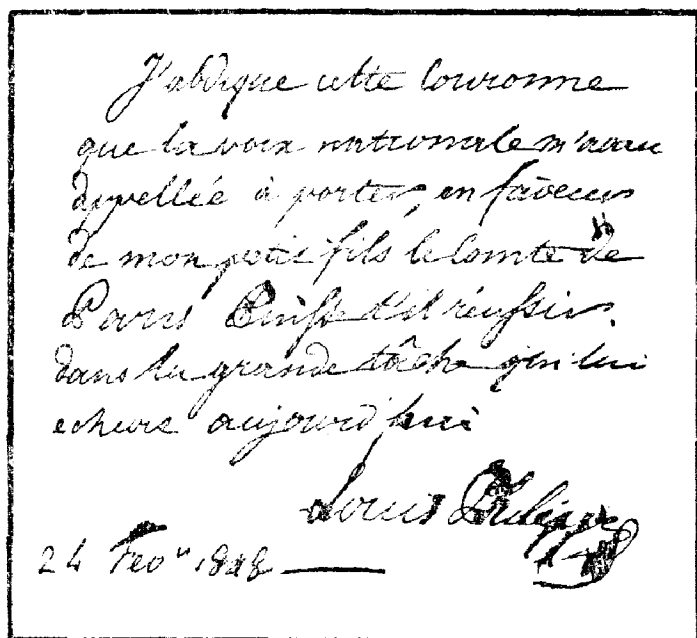 J'abdique cette Couronne
que la voix nationale m'avait
appellée à porter, en faveur
de mon petit fils le Comte de
Paris Puisse t'il réussir
dans la grande tâche qui lui
echeoit aujourd'hui
Louis Philippe
24 Fevr 1848